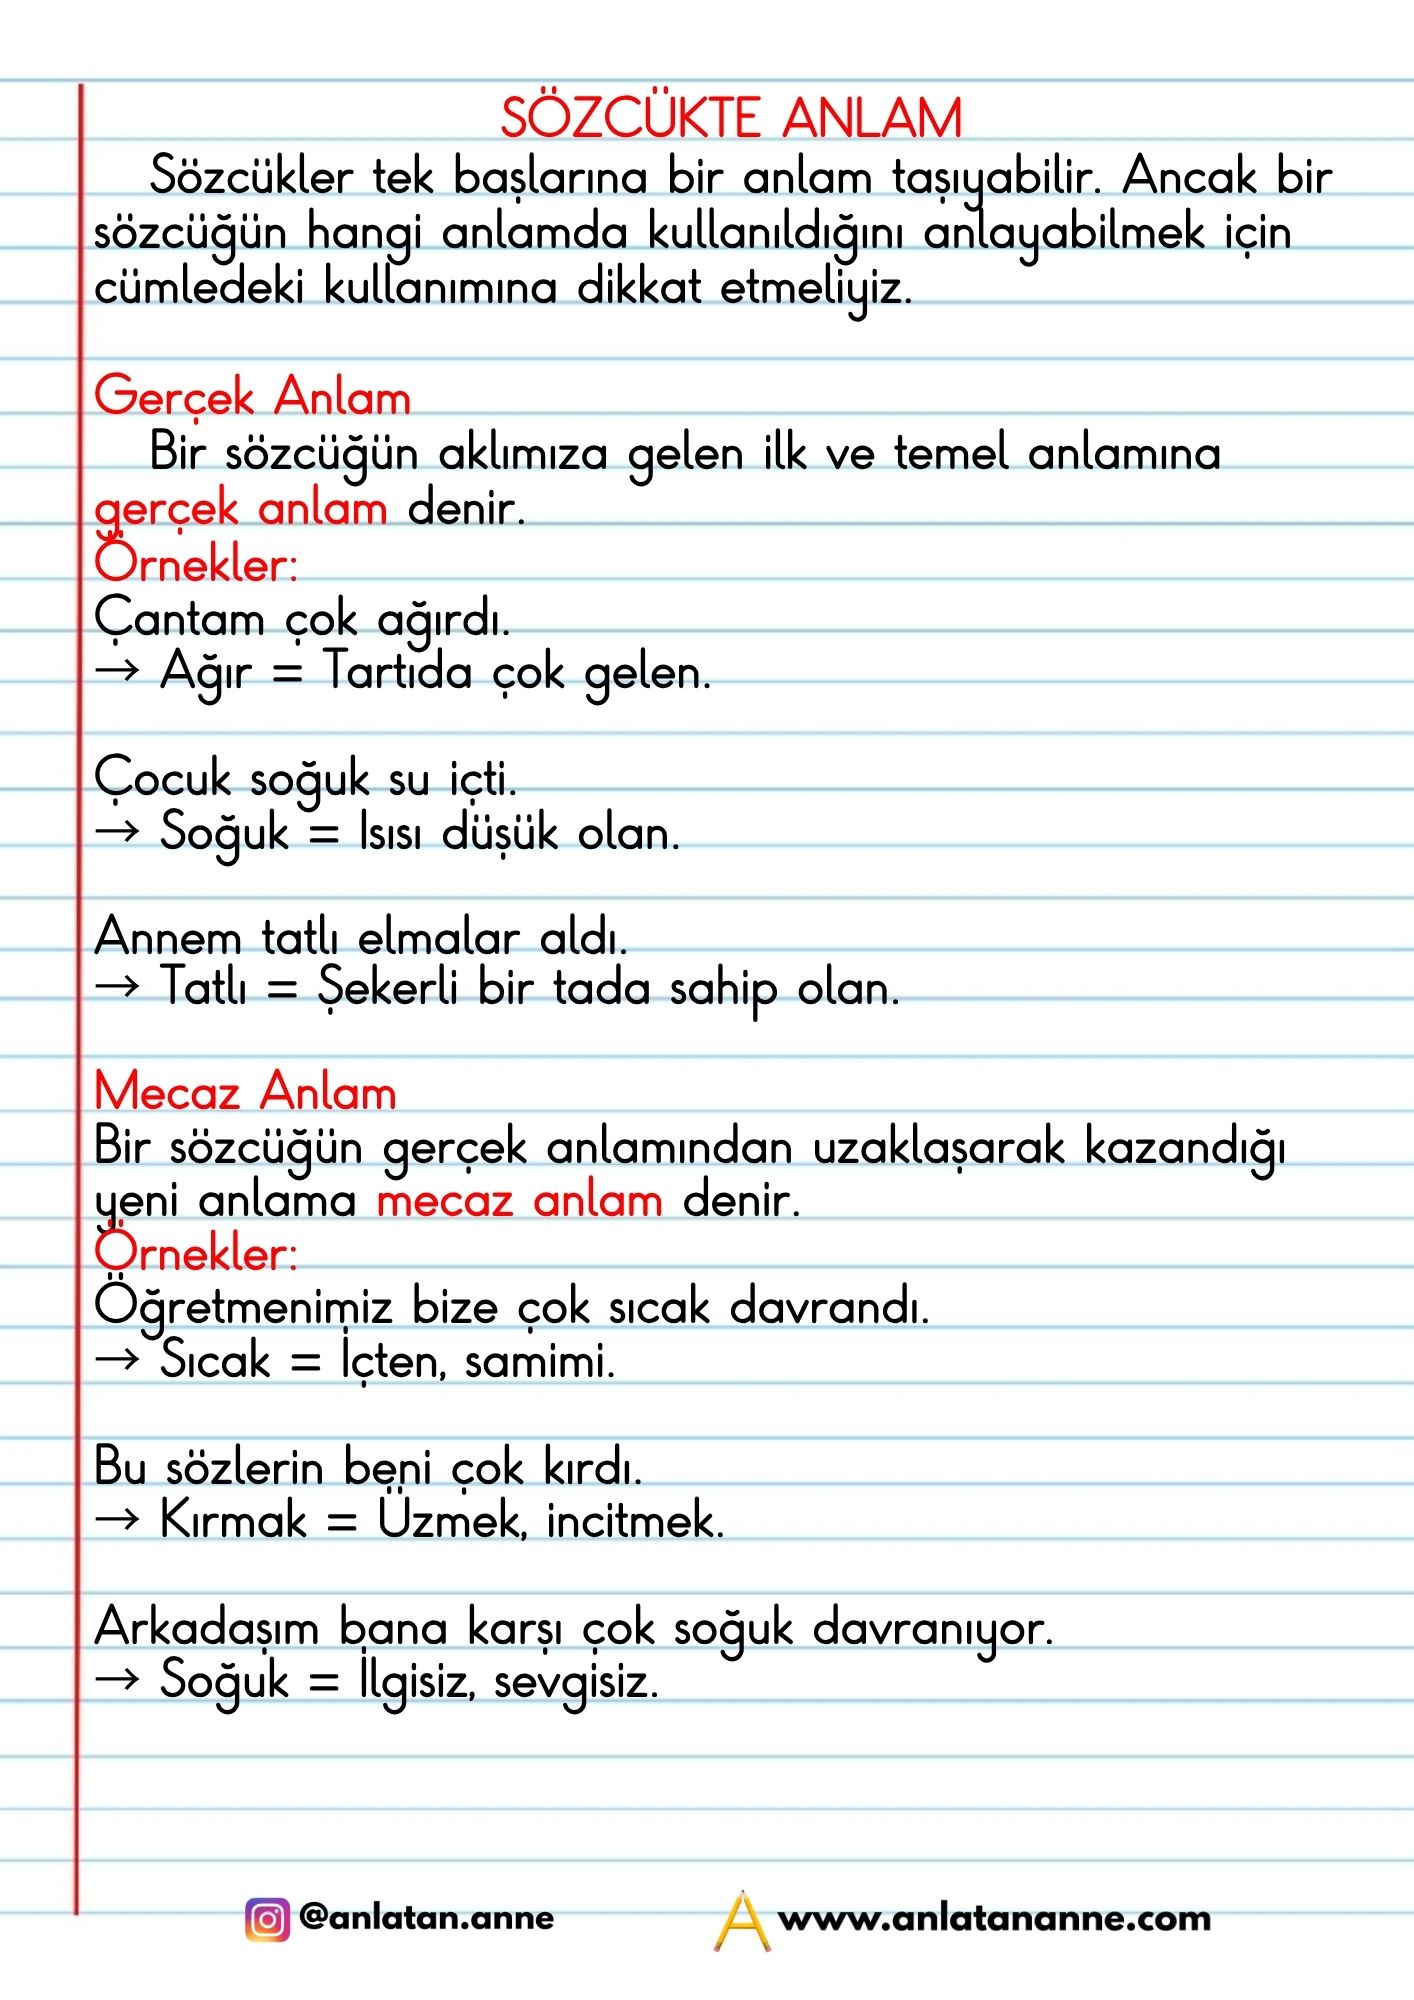 SÖZCÜKTE ANLAM
Sözcükler tek başlarına bir anlam taşıyabilir. Ancak bir
sözcüğün hangi anlamda kullanıldığını anlayabilmek için
cümledeki kullanımına dikkat etmeliyiz.
Gerçek Anlam
Bir sözcüğün aklımıza gelen ilk ve temel anlamına
gerçek anlam denir.
Örnekler:
Çantam çok ağırdı.
→ Ağır = Tartıda çok gelen.
Çocuk soğuk su içti.
→ Soğuk = Isısı düşük olan.
Annem tatlı elmalar aldı.
→ Tatlı = Şekerli bir tada sahip olan.
Mecaz Anlam
Bir sözcüğün gerçek anlamından uzaklaşarak kazandığı
yeni anlama mecaz anlam denir.
Örnekler:
Öğretmenimiz bize çok sıcak davrandı.
→ Sıcak = İçten, samimi.
Bu sözlerin beni çok kırdı.
→ Kırmak = Üzmek, incitmek.
Arkadaşım bana karşı çok soğuk davranıyor.
→ Soğuk = İlgisiz, sevgisiz.
@anlatan.anne www.anlatananne.com